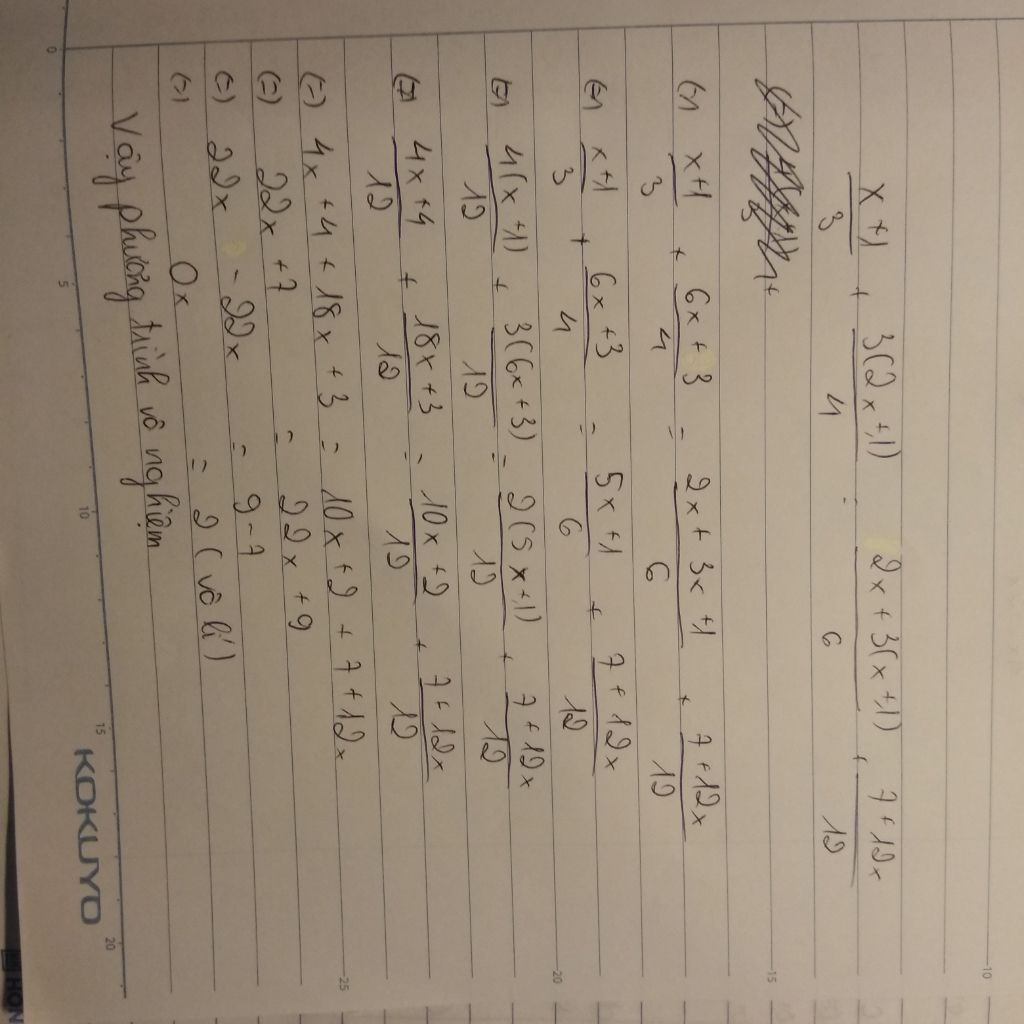 x+1/3 + 3(2x+1)/4 = 2x+3(x+1)/6 + 7+12x/12
(=) x+1/3 + 6x+3/4 = 2x+3x+1/6 + 7+12x/12
(=) x+1/3 + 6x+3/4 = 5x+1/6 + 7+12x/12
(=) 4(x+1)/12 + 3(6x+3)/12 = 2(5x+1)/12 + 7+12x/12
(=) 4x+4/12 + 18x+3/12 = 10x+2/12 + 7+12x/12
(=) 4x+4+18x+3 = 10x+2+7+12x
(=) 22x+7 = 22x+9
(=) 22x - 22x = 9-7
(=) 0x = 2 (vô lí)
Vậy phương trình vô nghiệm
0 5 10 15 20
KOKUYO
25 20 15 10